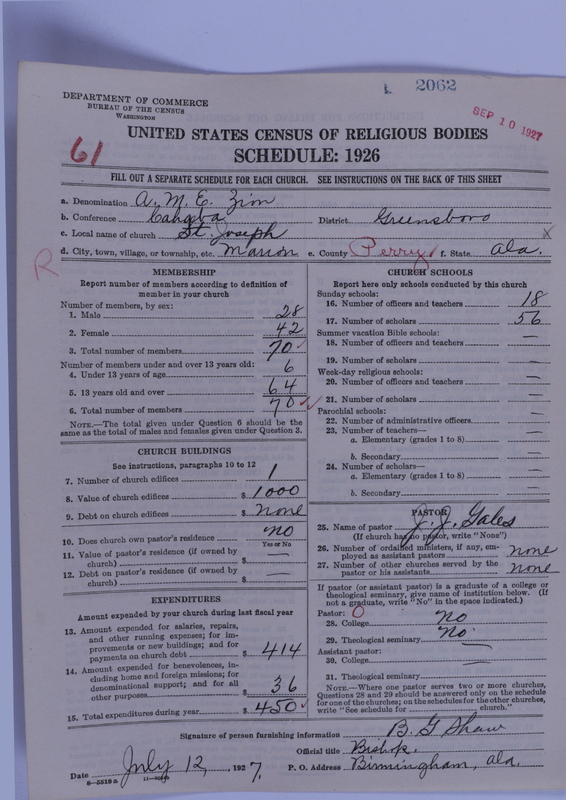 2062
SEP 10 1927
DEPARTMENT OF COMMERCE
BUREAU OF THE CENSUS
WASHINGTON
UNITED STATES CENSUS OF RELIGIOUS BODIES
61
SCHEDULE: 1926
FILL OUT A SEPARATE SCHEDULE FOR EACH CHURCH. SEE INSTRUCTIONS ON THE BACK OF THIS SHEET
a. Denomination A. M. E. Zion
b. Conference Cahaba District Greensboro
c. Local name of church St. Joseph x
d. City, town, village, or township, etc. Marion e. County Perry f. State Ala.
R
MEMBERSHIP
Report number of members according to definition of
member in your church
Number of members, by sex:
1. Male 28
2. Female 42
3. Total number of members 70
Number of members under and over 13 years old:
4. Under 13 years of age 6
5. 13 years old and over 64
6. Total number of members 70
NOTE.—The total given under Question 6 should be
the same as the total of males and females given under Question 3.
CHURCH BUILDINGS
See instructions, paragraphs 10 to 12
7. Number of church edifices 1
8. Value of church edifices $ 1000
9. Debt on church edifices $ none
10. Does church own pastor's residence no
Yes or No
11. Value of pastor's residence (if owned by
church) $ —
12. Debt on pastor's residence (if owned by
church) $ —
EXPENDITURES
Amount expended by your church during last fiscal year
13. Amount expended for salaries, repairs,
and other running expenses; for im-
provements or new buildings; and for
payments on church debt $ 414
14. Amount expended for benevolences, in-
cluding home and foreign missions; for
denominational support; and for all
other purposes $ 36
15. Total expenditures during year $ 450
CHURCH SCHOOLS
Report here only schools conducted by this church
Sunday schools:
16. Number of officers and teachers 18
17. Number of scholars 56
Summer vacation Bible schools:
18. Number of officers and teachers —
19. Number of scholars —
Week-day religious schools:
20. Number of officers and teachers —
21. Number of scholars —
Parochial schools:
22. Number of administrative officers —
23. Number of teachers—
a. Elementary (grades 1 to 8) —
b. Secondary —
24. Number of scholars—
a. Elementary (grades 1 to 8) —
b. Secondary —
PASTOR
25. Name of pastor J. J. Gales
(If church has no pastor, write "None")
26. Number of ordained ministers, if any, em-
ployed as assistant pastors none
27. Number of other churches served by the
pastor or his assistants none
If pastor (or assistant pastor) is a graduate of a college or
theological seminary, give name of institution below. (If
not a graduate, write "No" in the space indicated.)
Pastor: O
28. College no
29. Theological seminary no
Assistant pastor:
30. College —
31. Theological seminary
NOTE.—Where one pastor serves two or more churches,
Questions 28 and 29 should be answered only on the schedule
for one of the churches; on the schedules for the other churches,
write "See schedule for church."
Signature of person furnishing information B. G Shaw
Official title Bishop.
Date July 12, 1927. P. O. Address Birmingham, Ala.